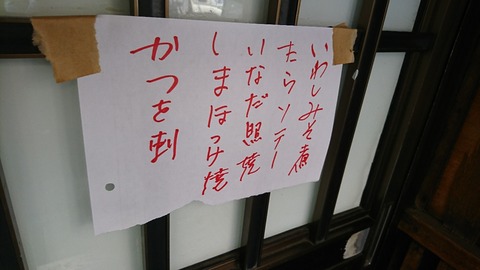 いわしみそ煮
たらソテー
いなだ照焼
しまほっけ焼
かつを刺